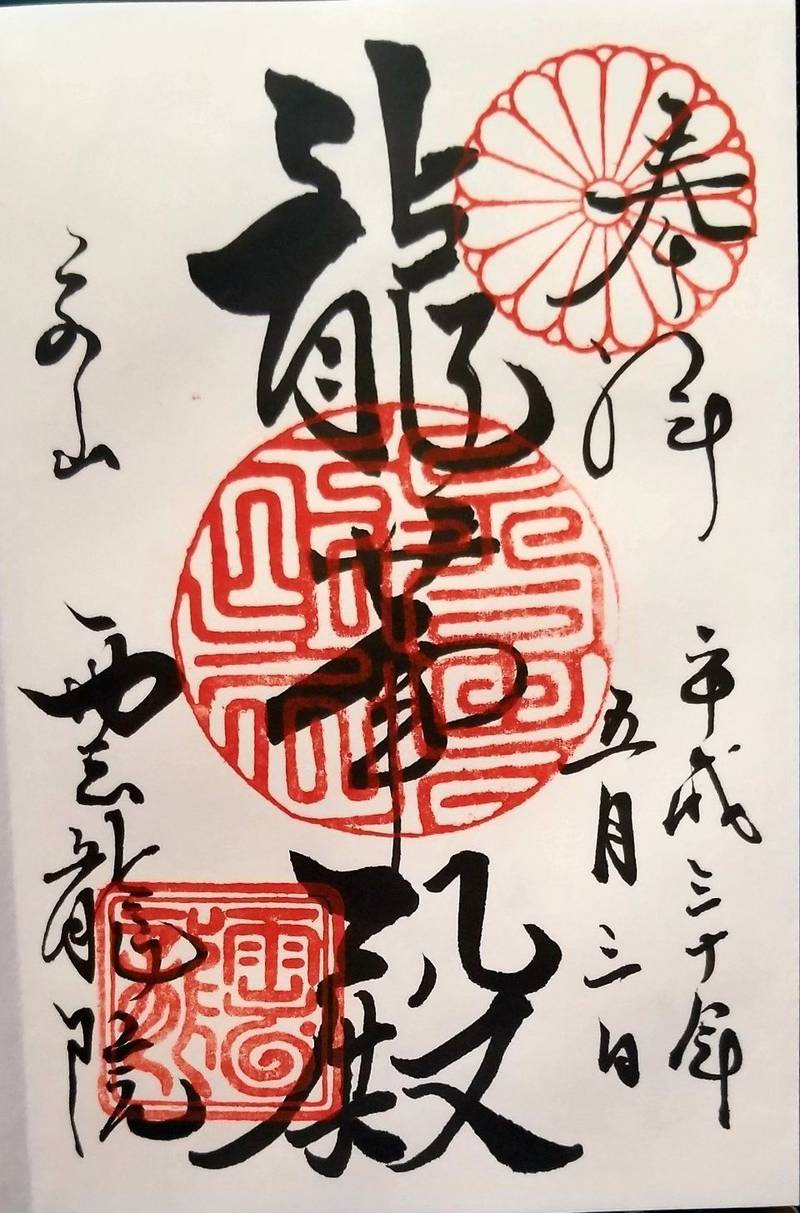 奉拝
平成三十年
五月三日
龍華殿
泉山
雲龍院